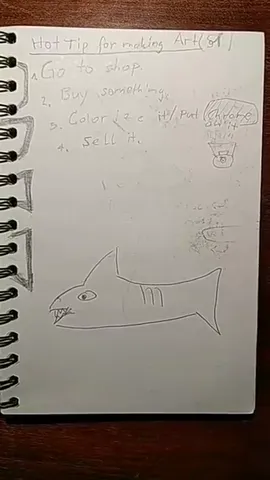 Hot Tip for making Art
1. Go to shop.
2. Buy something
3. Color it Put Chrome on it
4. Sell it.